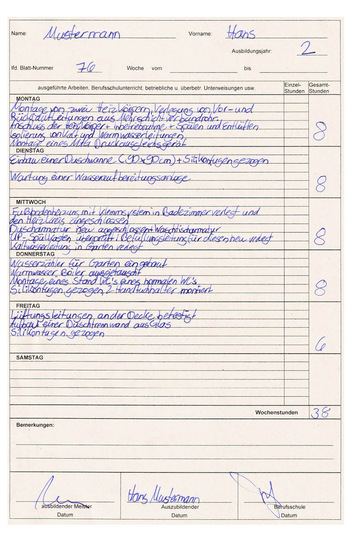 Name: Mustermann Vorname: Hans
Ausbildungsjahr: 2
lfd. Blatt-Nummer 76 Woche vom bis
ausgeführte Arbeiten, Berufsschulunterricht, betriebliche u. überbetr. Unterweisungen usw. Einzel-Stunden Gesamt-Stunden
MONTAG
Montage von zwei Heizkörpern, Verlegung von Vor- und
Rücklaufleitungen aus Mehrschichtverbundrohr,
Anschluss der Heizkörper + Inbetriebnahme + Spülen und Entlüften
Isolierung von Kalt und Warmwasserleitungen 8
Montage eines
DIENSTAG
Einbau einer Duschwanne (90x90cm) + Silikonfugen gezogen
Wartung einer Wasseraufbereitungsanlage
8
MITTWOCH
Fußbodenheizung mit Klemmsystem in Badezimmer verlegt und
den Heizkreis angeschlossen
Duscharmatur neu angeschlossen Waschtischarmatur
für diesen neu verlegt 8
in Garten verlegt
DONNERSTAG
Wasserzähler für Garten eingebaut
Warmwasser Boiler ausgetauscht
Montage eines Stand WC's eines normalen WC's
Silikonfugen gezogen, 2 Handtuchhalter montiert 8
FREITAG
Lüftungsleitungen an der Decke befestigt
Aufbau einer Duschtrennwand aus Glas
Silikonfugen gezogen
6
SAMSTAG
Wochenstunden 38
Bemerkungen:
Hans Mustermann
ausbildender Meister Auszubildender Berufsschule
Datum Datum Datum